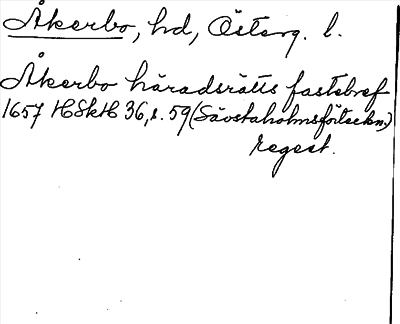 Åkerbo, hd, Österg. l.
Åkerbo häradsrätts fastebref
1657 HSkH 36, s. 59 (Säostaholmsförteckn.)
regest.